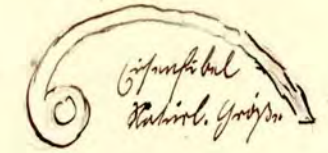 Eisenfibel
Natürl. Größe